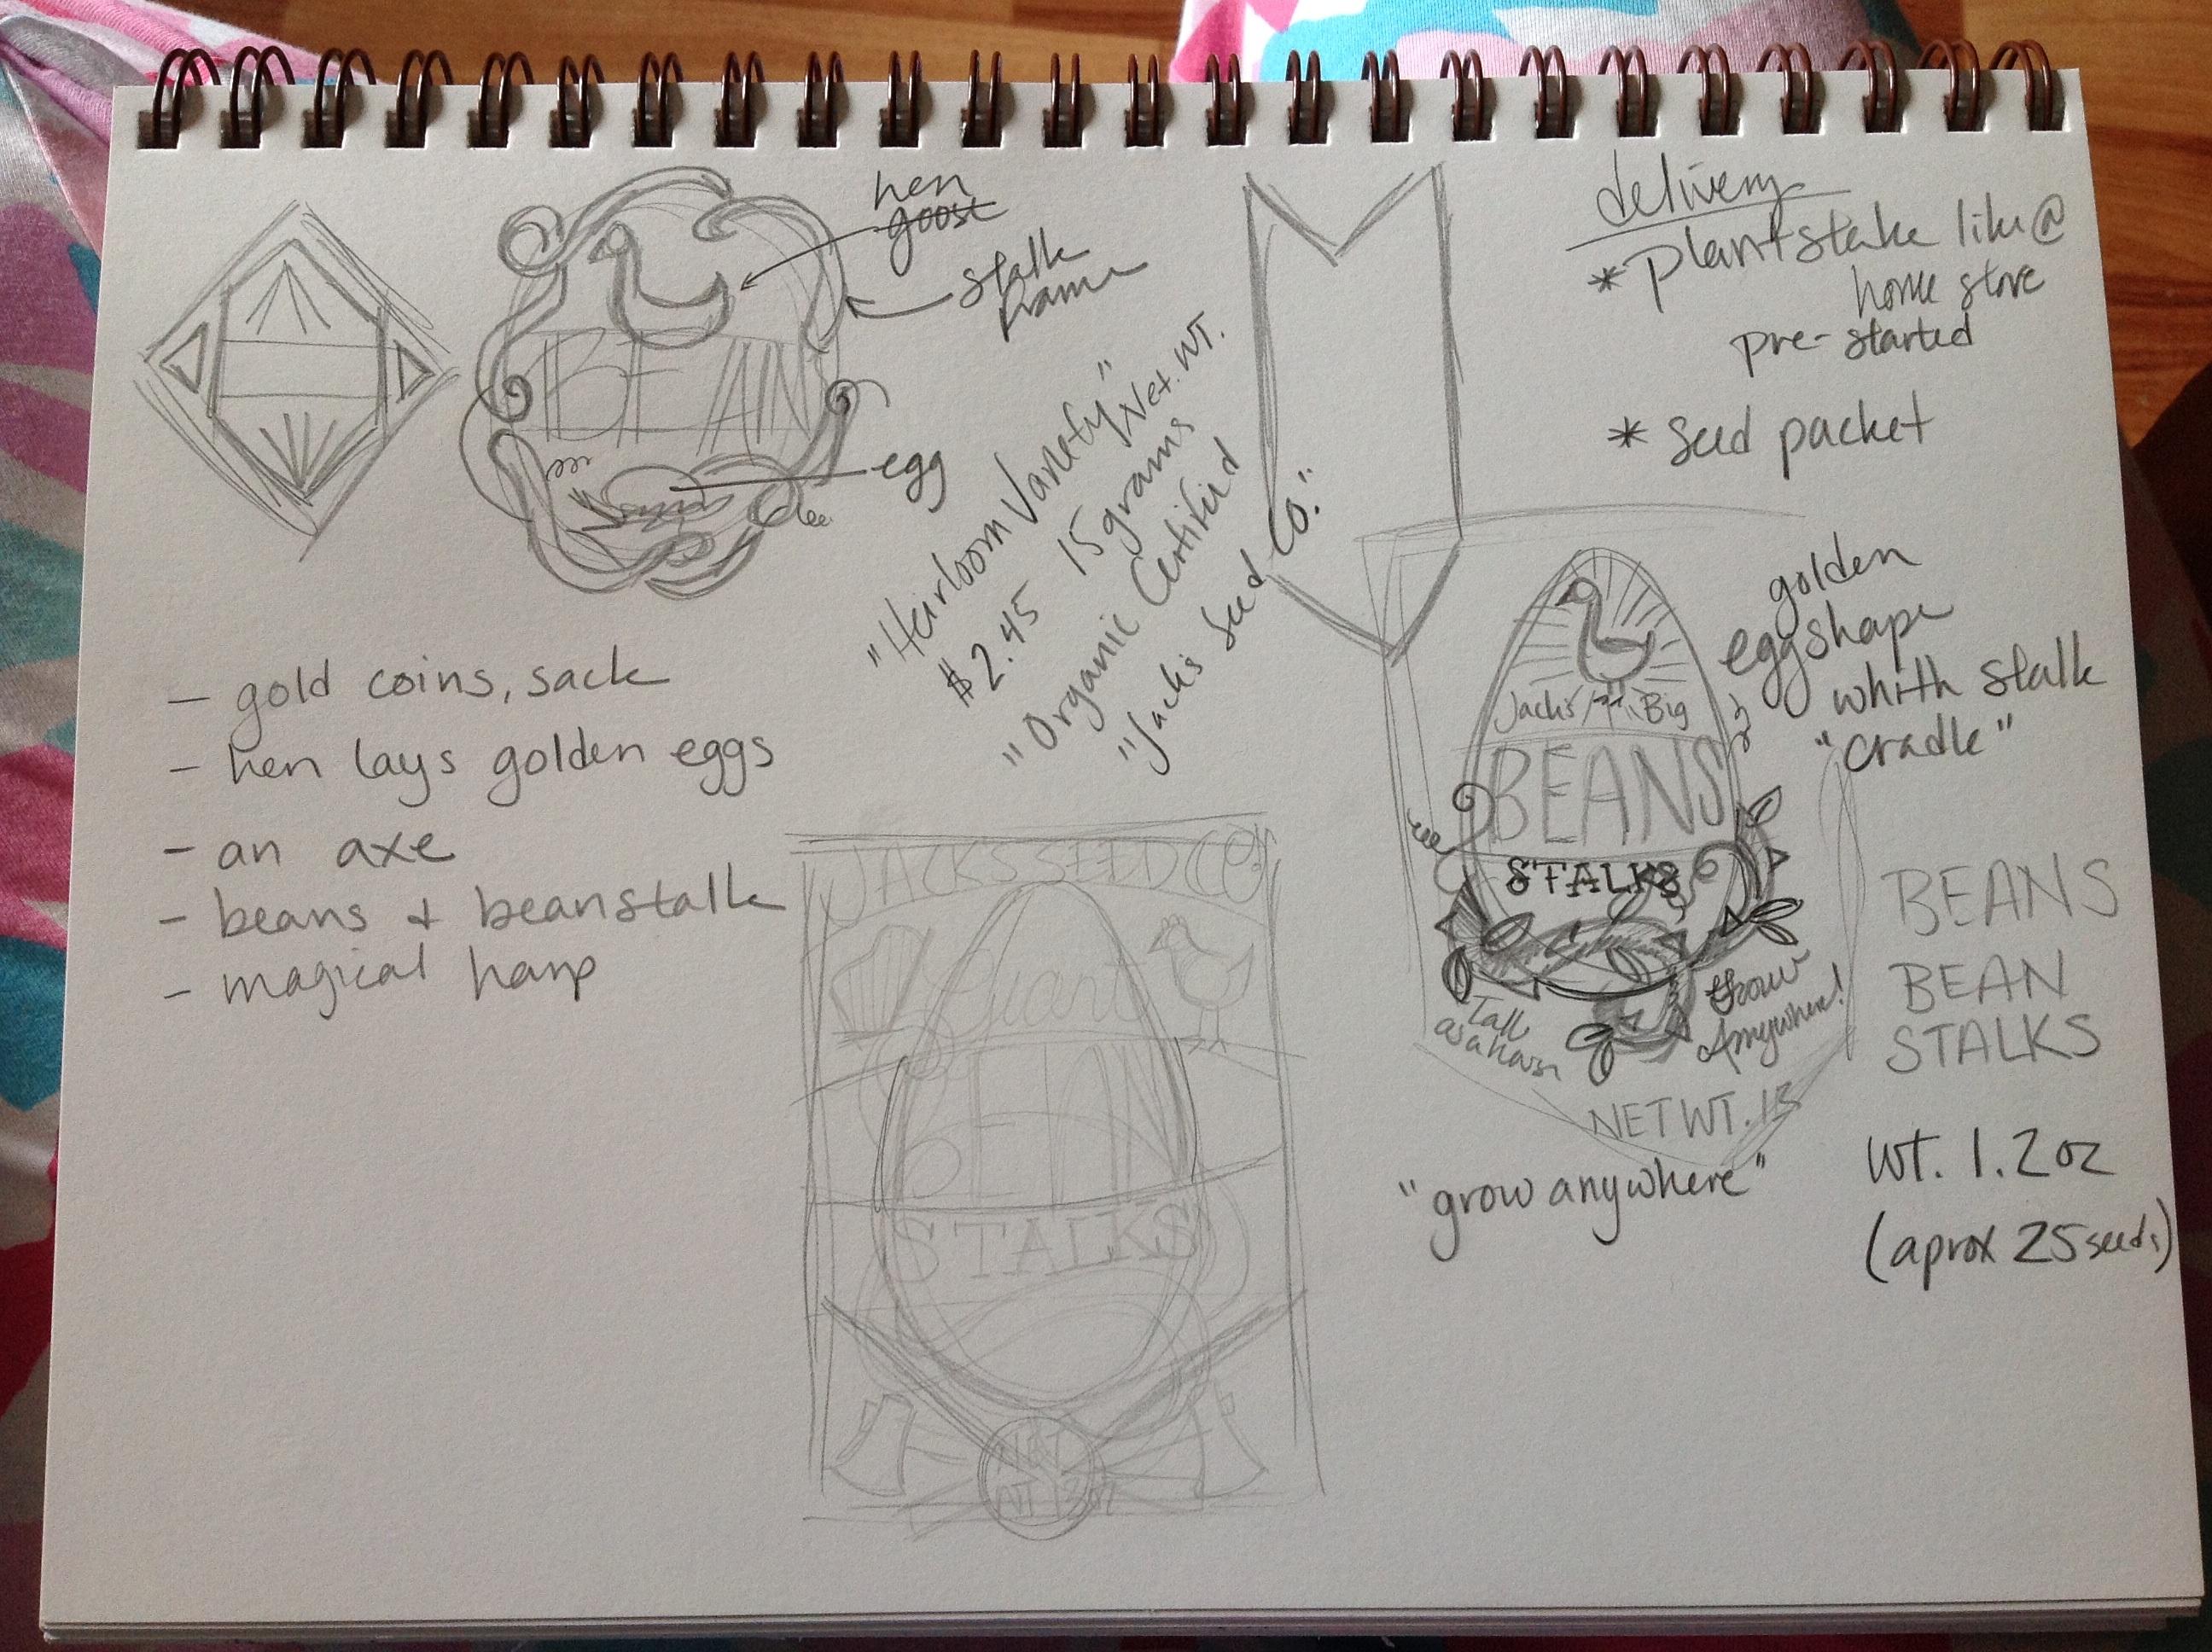 hen
goose
stalk
frame
BEAN
egg
"Heirloom Variety" Net. WT.
$2.45 15 grams
"Organic Certified
"Jack's Seed Co."
delivery
* plant stake like @
home store
pre-started
* seed packet
golden
egg shape
whith stalk
"cradle"
Jack's Big
BEANS
STALKS
Tall
as a house
Grow
Anywhere!
NET WT.
"grow anywhere"
BEANS
BEAN
STALKS
WT. 1.2oz
(aprox 25 seeds)
- gold coins, sack
- hen lays golden eggs
- an axe
- beans + beanstalk
- magical harp
JACK'S SEED CO
Giant
BEAN
STALKS
NET
WT 1.2oz